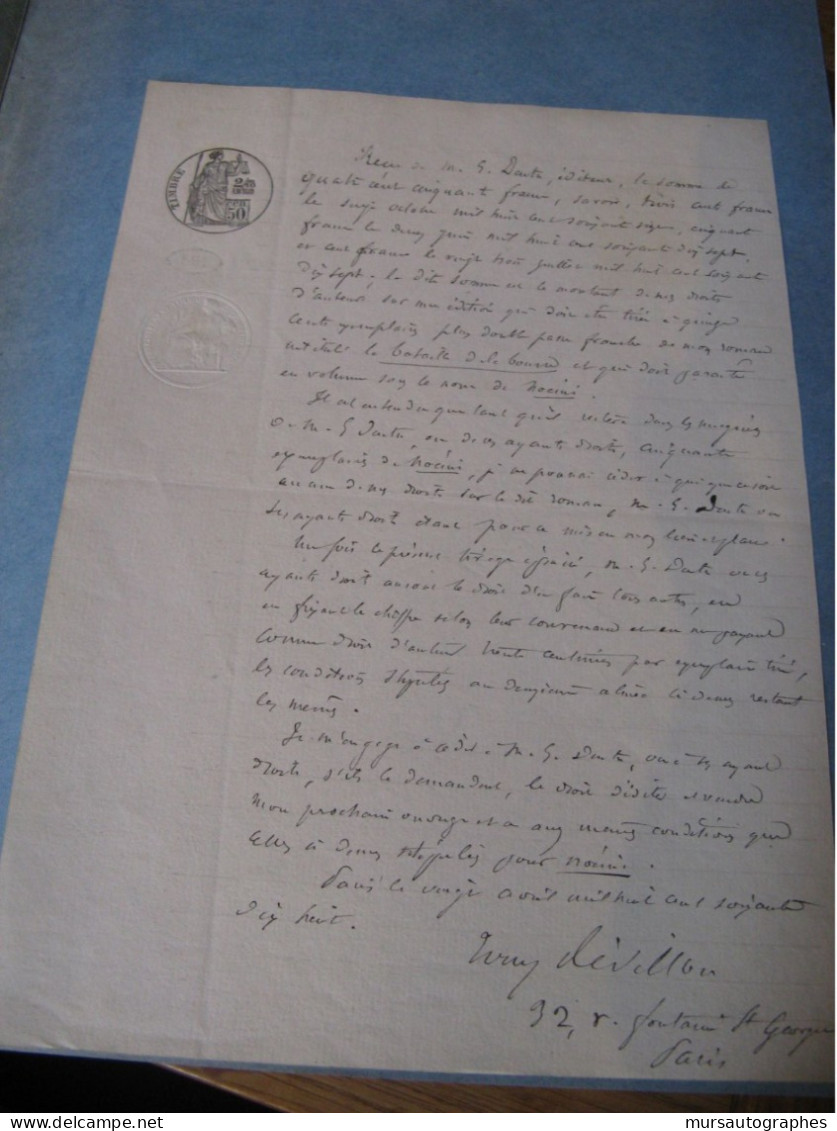 TIMBRE
50
Reçu de M. E. Dentu, éditeur, la somme de
quatre cent cinquante francs, savoir, trois cent francs
le seize octobre mil huit cent soixante seize, cinquant
francs le quinze mil huit cent soixante dix sept,
et cent francs le vingt trois juillet mil huit cent soixante
dix sept; la dite somme est le montant de mes droits
d'auteur sur une édition qui doit être tirée à quinze
cents exemplaires plus double passe franche de mon roman
intitulé la bataille de la bourse et qui doit paraître
en volume sous le nom de Nocéni.
Il est entendu que tant qu'il restera dans les magasins
de M. E. Dentu, ou de ses ayants droits, cinquante
exemplaires de Nocéni, je ne pourrai céder à qui que ce soit
aucun de mes droits sur le dit roman, M. E. Dentu ou
ses ayants droit étant pour ce mis en mon lieu et place.
Une fois le présent tirage épuisé, M. E. Dentu ou ses
ayants droit auront le droit d'en faire tous autres, en
en fixant le chiffre selon leur convenance et en me payant
comme droit d'auteur trente centimes par exemplaire tiré,
les conditions stipulées au deuxième alinéa ci dessus restant
les mêmes.
Je m'engage à céder à M. E. Dentu, ou à ses ayant
droits, s'ils le demandent, le droit d'éditer et vendre
mon prochain ouvrage et a aux mêmes conditions que
celles ci dessus stipulées pour Nocéni.
Paris le vingt avril mil huit cent soixante
dix huit.
32, r. fontaine St George
Paris
mursautographes